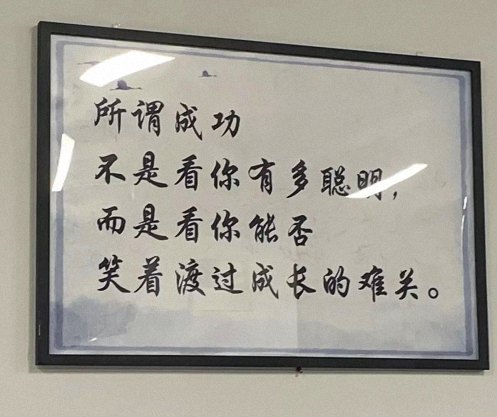 所谓成功
不是看你有多聪明，
而是看你能否
笑着渡过成长的难关。